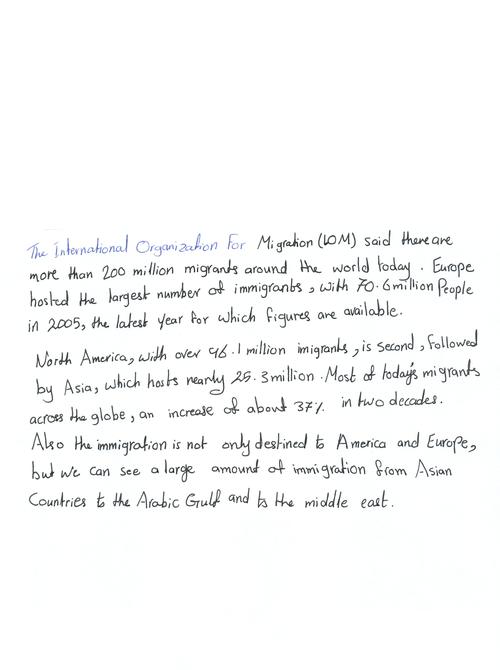 The International Organization For Migration (IOM) said there are
more than 200 million migrants around the world today. Europe
hosted the largest number of immigrants, with 70.6 million People
in 2005, the latest year for which figures are available.
North America, with over 46.1 million imigrants, is second, followed
by Asia, which hosts nearly 25.3 million. Most of today's migrants
across the globe, an increase of about 37% in two decades.
Also the immigration is not only destined to America and Europe,
but we can see a large amount of immigration from Asian
Countries to the Arabic Gulf and to the middle east.